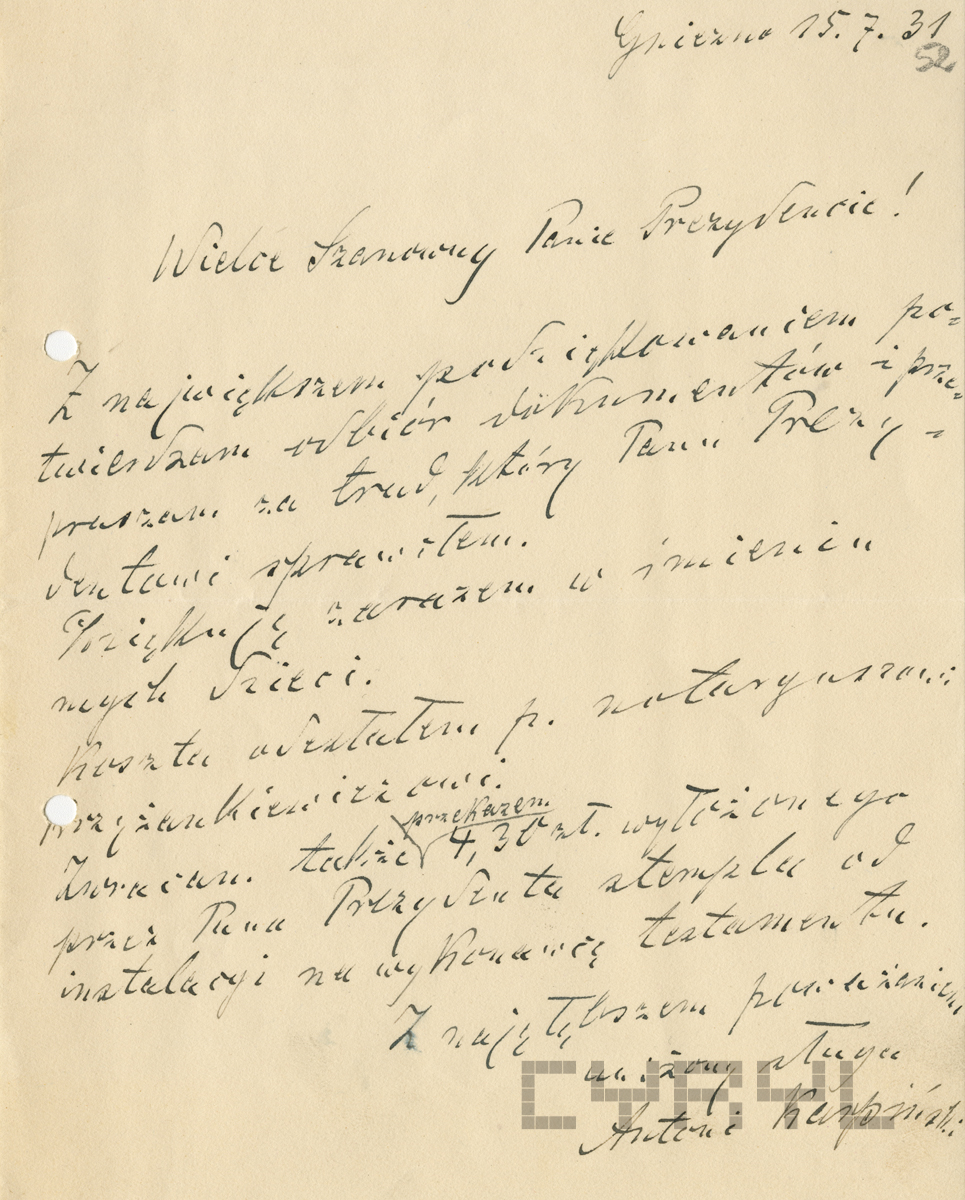 Gniezno 15. 7. 31
52
Wielce Szanowny Panie Prezydencie!
Z największem podziękowaniem po=
twierdzam odbiór dokumentów i prze=
praszam za trud, który Panu Prezy-
dentowi sprawiłem.
Dziękuję zarazem w imieniu
mych dzieci.
Koszta odesłałem p. notaryuszowi
przekazem
Zwracam także 4,30 zł. wyłożonego
przez Pana Prezydenta stempla od
instalacyi na wykonawcę testamentu.
Z najgłębszem poważaniem
uniżony sługa
Antoni Karpiński
CYRYL